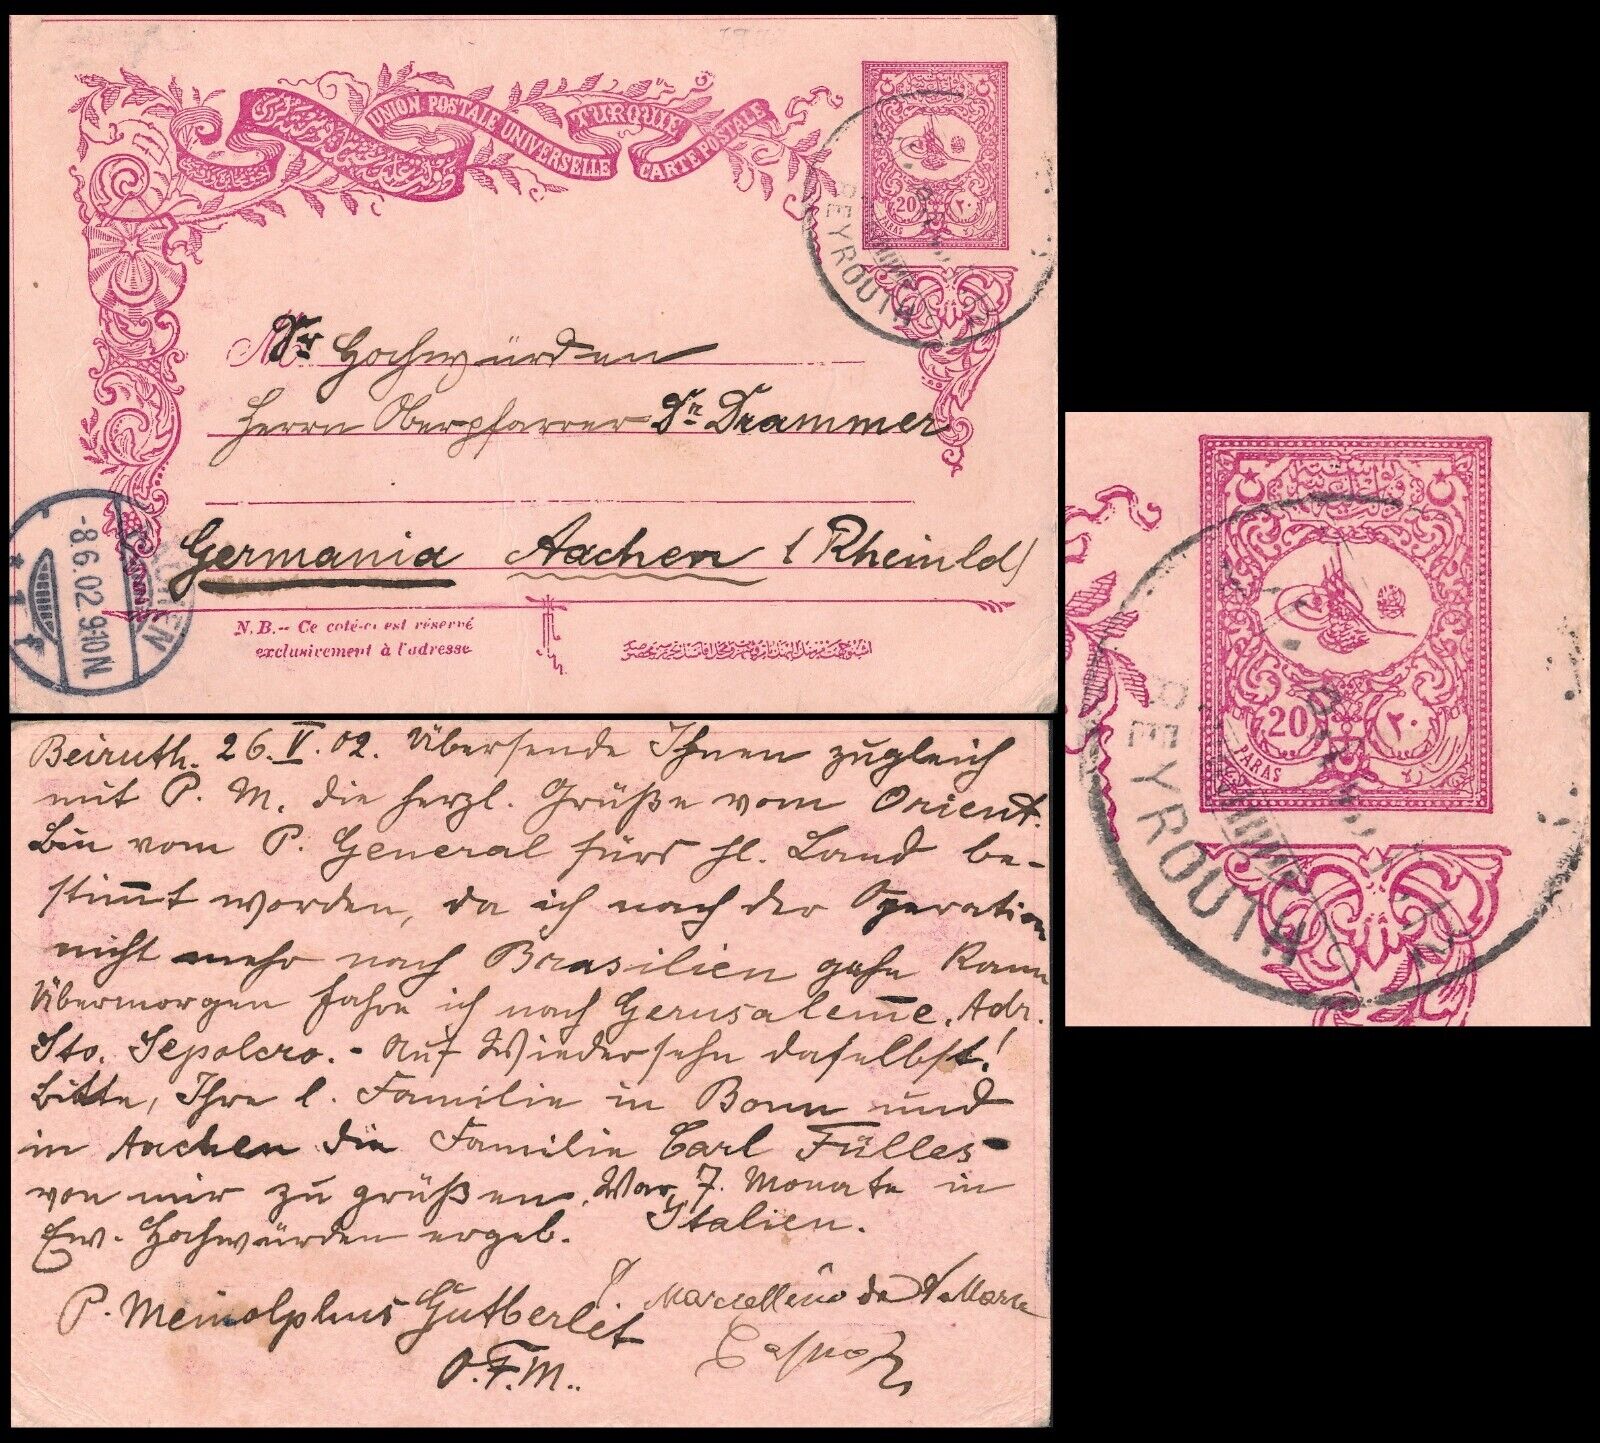 UNION POSTALE UNIVERSELLE
TURQUIE
CARTE POSTALE
20 ٢٠
PARAS
BEYROUTH
Sr Hochwürden
Herrn Oberpfarrer Dr. Drammer
Germania Aachen (Rheinld)
AACHEN
-8.6.02.9-10N.
* 1
N.B.-- Ce coté-ci est réservé
exclusivement à l'adresse
Beiruth. 26.V.02. Übersende Ihnen zugleich
mit P. M. die herzl. Grüße vom Orient.
Bin vom P. General fürs hl. Land be-
stim̅t worden, da ich nach der Operation
nicht mehr nach Brasilien gehn kann
Übermorgen fahre ich nach Gerusalem̅e. Adr.
Sto. Sepolcro. - Auf Wiedersehn daselbst!
Bitte, Ihre l. Familie in Bonn und
in Aachen die Familie Carl Fülles
von mir zu grüßen. War 7 Monate in
Italien.
Ew. Hochwürden ergeb.
P. Meinolphus Gutberlet
O.F.M..
P Marcellino da
20 ٢٠
PARAS
BEYROUTH